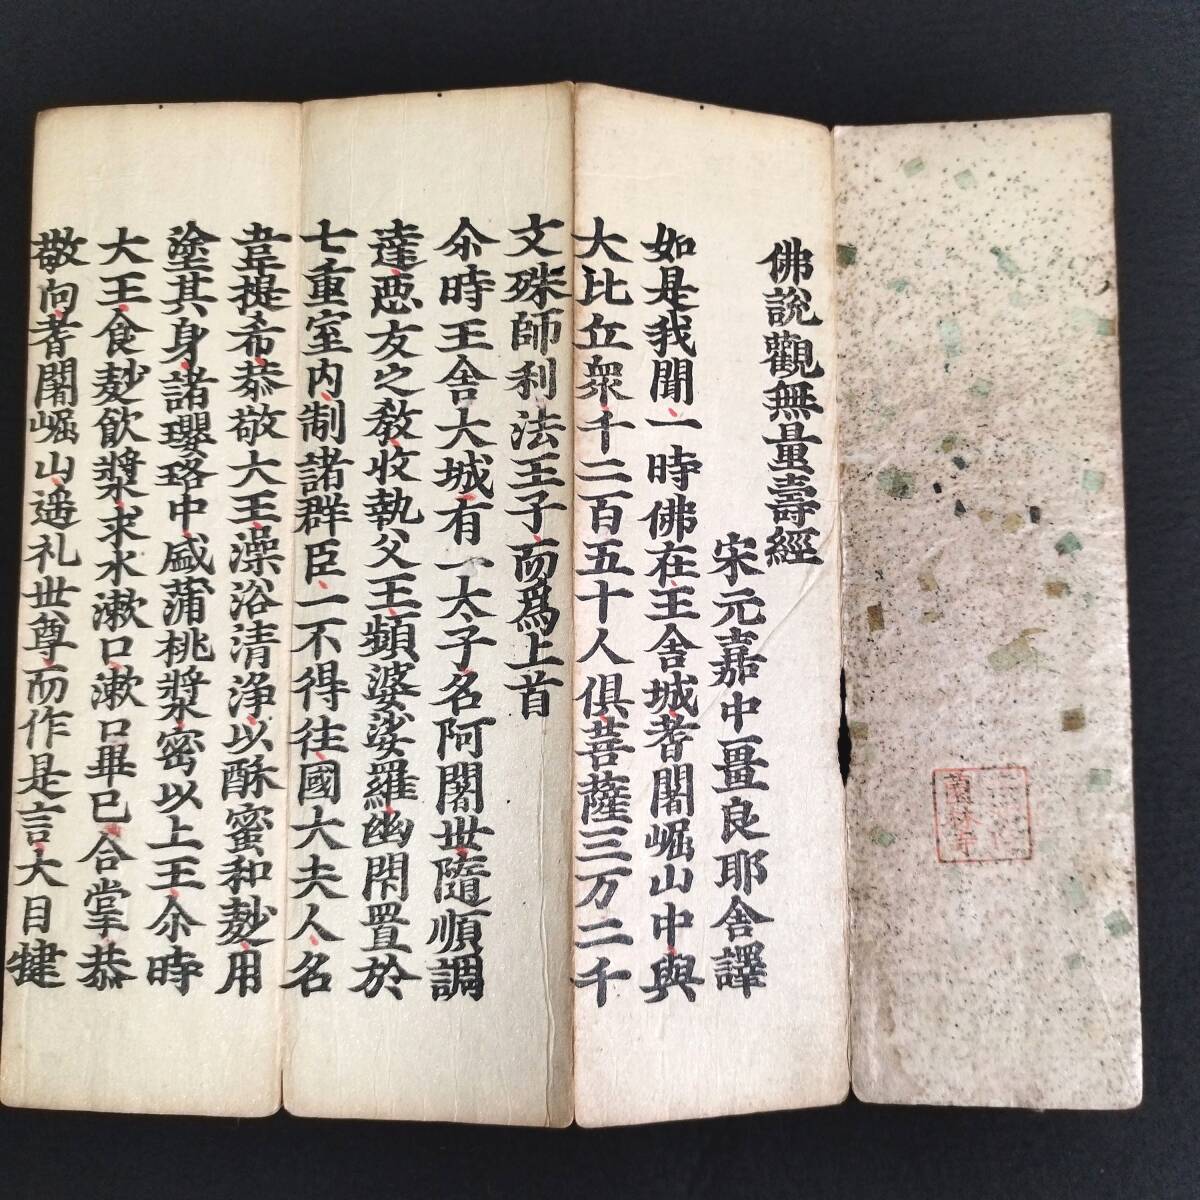 佛說觀無量壽經
宋元嘉中畺良耶舍譯
如是我聞一時佛在王舍城耆闍崛山中與
大比丘衆千二百五十人俱菩薩三万二千
文殊師利法王子而爲上首
尒時王舍大城有一太子名阿闍世隨順調
達惡友之教收執父王頻婆娑羅幽閇置於
七重室内制諸群臣一不得往國大夫人名
韋提希恭敬大王澡浴清淨以酥蜜和麨用
塗其身諸瓔珞中盛蒲桃漿密以上王尒時
大王食麨飲漿求水漱口漱口畢已合掌恭
敬向耆闍崛山遥礼世尊而作是言大目犍